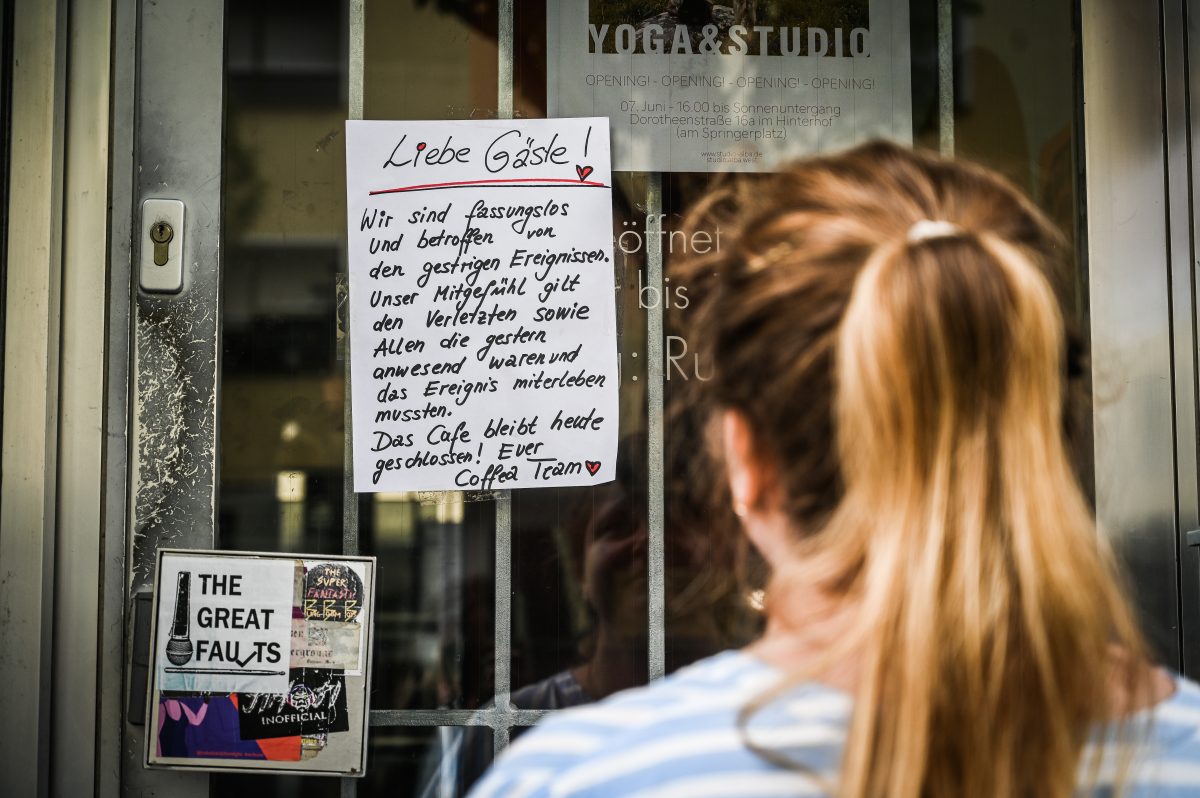 YOGA&STUDIO
OPENING! - OPENING! - OPENING! - OPENING!
07. Juni - 16.00 bis Sonnenuntergang
Dorotheenstraße 16a im Hinterhof
(am Springerplatz)
www.studio-alba.de
studio.alba.west
Liebe Gäste!
Wir sind fassungslos
und betroffen von
den gestrigen Ereignissen.
Unser Mitgefühl gilt
den Verletzten sowie
Allen die gestern
anwesend waren und
das Ereignis miterleben
mussten.
Das Cafe bleibt heute
geschlossen! Euer
Coffea Team
öffnet
bis
: Ru
THE
GREAT
FAULTS
THE
SUPER
FANTASTIC
INOFFICIAL